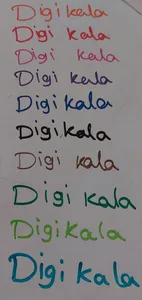 Digi kala
Digi kala
Digi kala
Digi kala
Digi kala
Digi kala
Digi kala
Digi kala
Digi kala
Digi kala